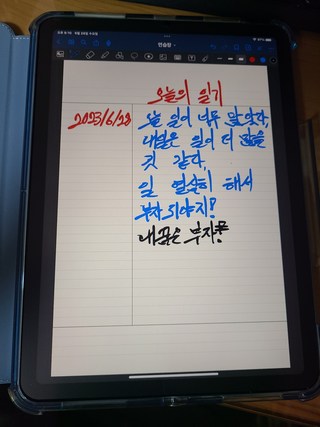 오늘의 일기
2023/6/28
오늘 일이 너무 많았다,
내일은 일이 더 많을
것 같다,
일 열심히 해서
부자 되야지!
내꿈은 부자!